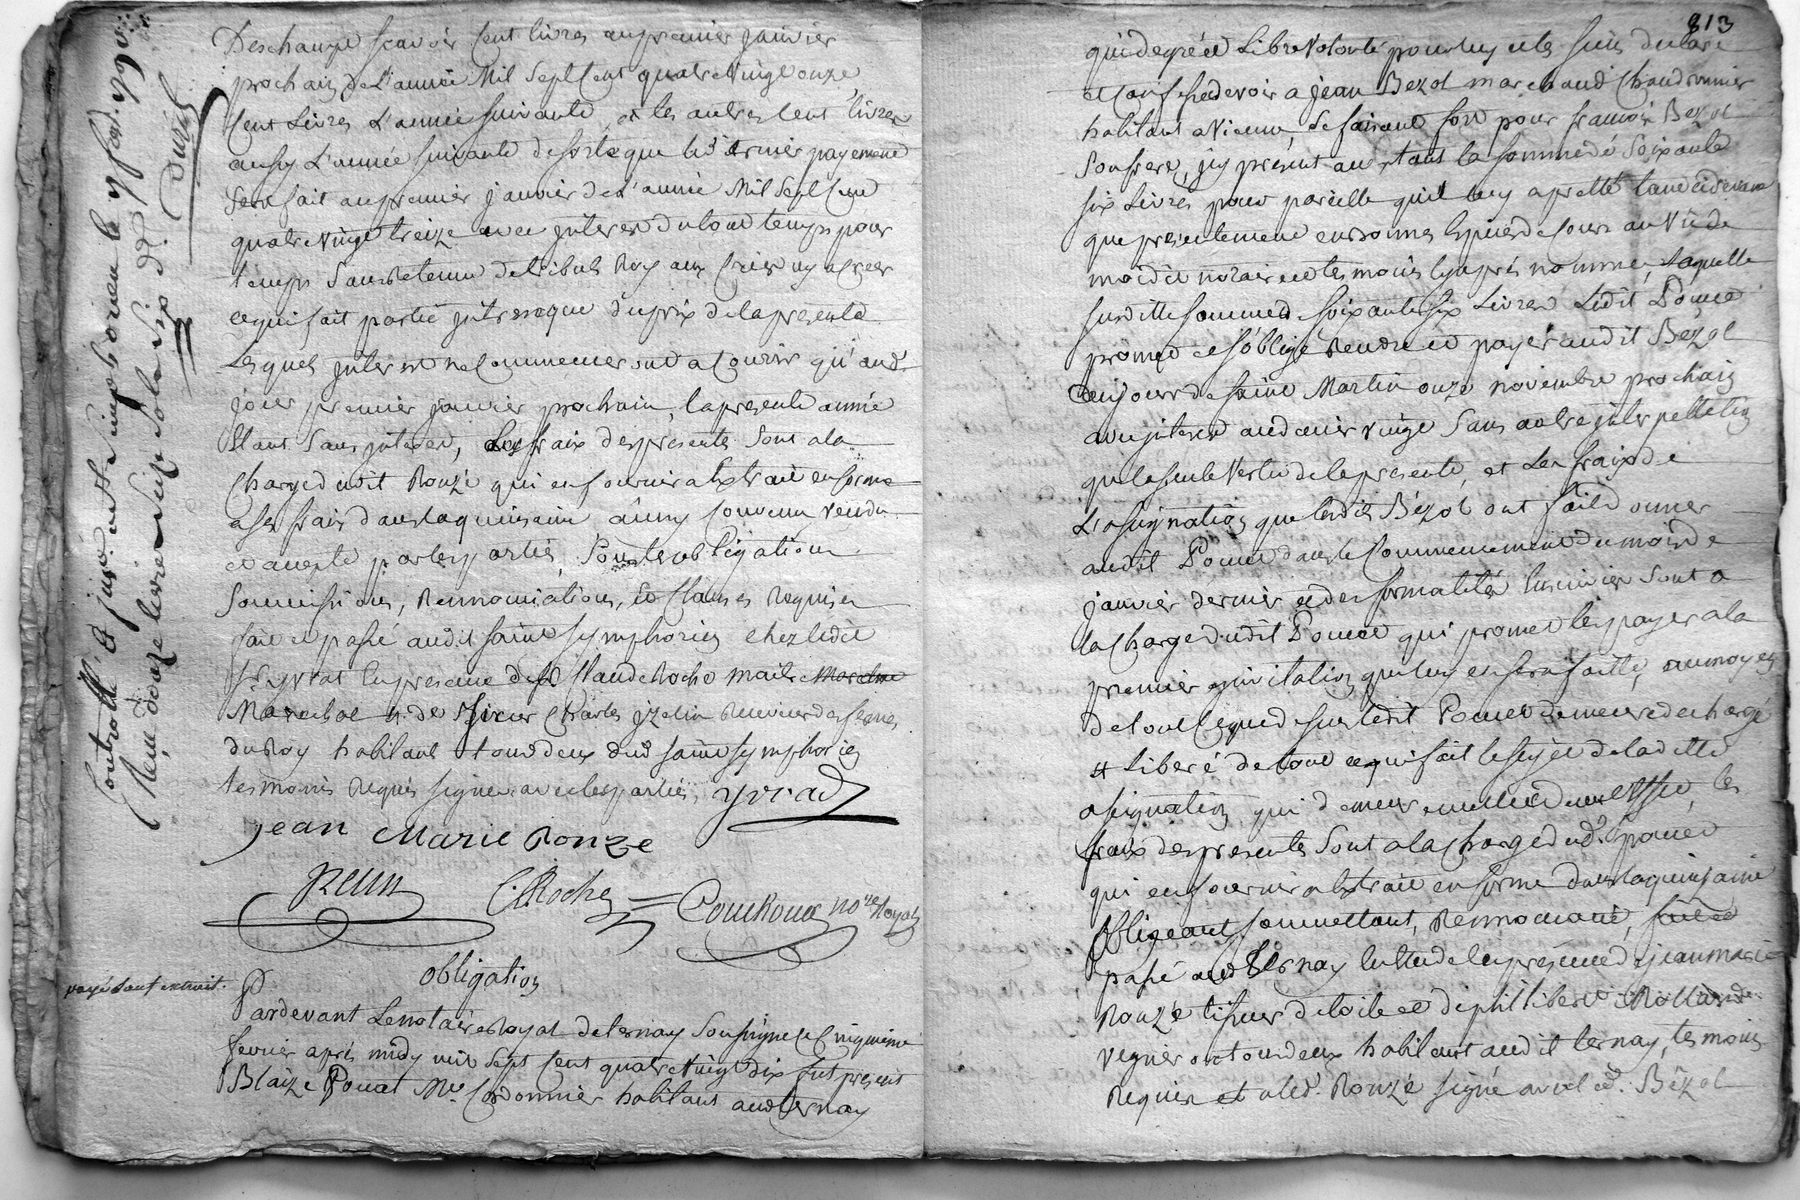 Deschaux scavoir Cent livres au premier janvier
prochain de L'année Mil Sept Cent quatre vingt onze
Cent Livres L'année suivante, et les autres Cent livres
aussy L'année suivante de sorte que le dernier payement
sera fait au premier janvier de L'année Mil Sept Cent
quatre vingt treize avec interest du tout temps pour
temps sans Retenue
ce qui fait partie intrinseque du prix de la presente
Lesquels interest ne Commenceront a Courir qu'aud.
jour premier janvier prochain, la presente année
Etant sans interest, Les fraix des presentes sont a la
Charge dudit Ronzé qui en fournira Extrait en forme
a ses frais dans la quinzaine ainsy Convenu vendu
et accepté par les parties, sous les obligations
Soumissions, Rennonciations, Et Clauses Requises
fait et passé audit saint symphorien chez ledit
sr yvrad En presence de sr Claude Roche maitre
Maréchal et de sieur Charles Receveur des fermes
du Roy habitant tous deux dud saint symphorien
temoins Requis signés avec les parties, yvrad
jean Marie Ronze
C. Roche Couchoud no.re Royal
obligation
payé sauf extrait.
Pardevant Le notaire Royal de ternay soussigné Le Cinquieme
fevrier après midy mil sept cent quatre vingt dix fut present
Blaize Pouet Me. Cordonnier habitant aud ternay
Controllé a saint simphorien le fev. 1790
Reçu douze livres
813
qui de gré et Libre Volonté pour luy et les siens declare
et Confesse devoir a jean Bezol marchand Chaudronnier
habitant a Vienne se faisant fort pour francois Bezol
son frere, icy présent acceptant la somme de soixante
six Livres pour pareille qu'il luy a pretté tant cidevant
que presentement en bonnes Especes de Cours au Vû de
moidit notaire et temoins Cyaprés nommés, Laquelle
susditte somme de soixante six Livres Ledit Pouet
promet et s'oblige Rendre et payer audit Bezol
aujour de saint Martin onze novembre prochain
avec interest au denier vingt sans autre interpellation
que la seule Vertu de la presente, et Les fraix de
L'assignation que lesdits Bézol ont fait donner
audit Pouet dans le Commencement du mois de
janvier dernier et des formalités sont a
la Charge dudit Pouet qui promet les payer a la
premier quittation que luy en sera faitte, aumoyen
de tout Ce que dessus ledit Pouet demeure dechargé
et Liberé de tout ce qui fait le sujet de laditte
assignation qui demeure nulle et sans effet, les
fraix des presentes sont a la Charge dud. Pouet
qui en fournira Extrait en forme dans la quinzaine
obligeant, soumettant, Rennonciant, fait et
passé aud ternay Etude En présence de jean marie
Ronzé tisseur de toile et de philibert Rolland
vigneron tous deux habitant audit ternay, temoins
Requis et led. Ronzé signé avec led. Bézol